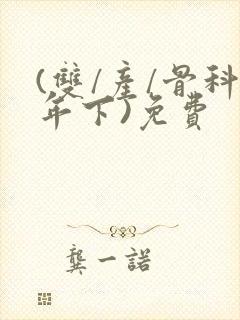 (雙/產/骨科
年下)免費
龔一諾